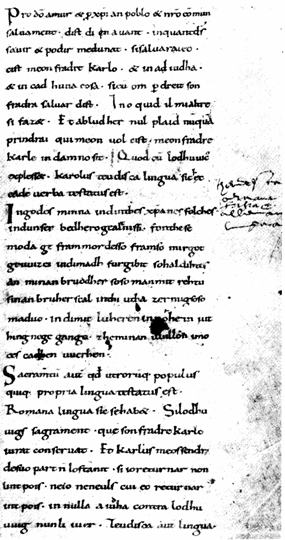 Pro dō amur & p xp̄ian poblo & nrō cōmun
saluament. dist di en auant. inquantdš
sauir & podir medunat. sisaluaraieo.
cist meon fradre Karlo. & in ad iudha.
& in cad huna cosa. sicū om p dreit son
fradra saluar dist. Ino quid il mialtre
si fazet. Et abludher nul plaid nūquā
prindrai qui meon uol cist. meonfradre
Karle in damno sit. Quod cū lodhuuic
explesset. karolus teudisca lingua sic hęc
eadē uerba testatus est.
In godes minna indinthes xp̄anes folches
indunser bedhero gealtnissi. fonthese
moda ge frammordesso framso mirgot
geuuizci indimadh furgibit sohaldihtes
an minan bruodher soso manmit rehtu
sinan bruher scal inthi utha zermigsoso
maduo. indimit luheren in nohein iut
hing nege gango. zheminan uuillon imo
ces cadhen uuerhen.
Sacramtū aut qd utrorūq; populus
quiq; propria lingua testatus est.
Romana lingua sic sehabet. Silodhu
uigs sagrament. que son fradre karlo
iurat conseruat. Et karlus meossendra
desuo part n̄ lostanit. si ioreturnar non
lint pois. neio neneuls cui eo returnar
int pois. in nulla aiudha contra lodhu
uuig nunli iuer. Teudisca aut lingua.